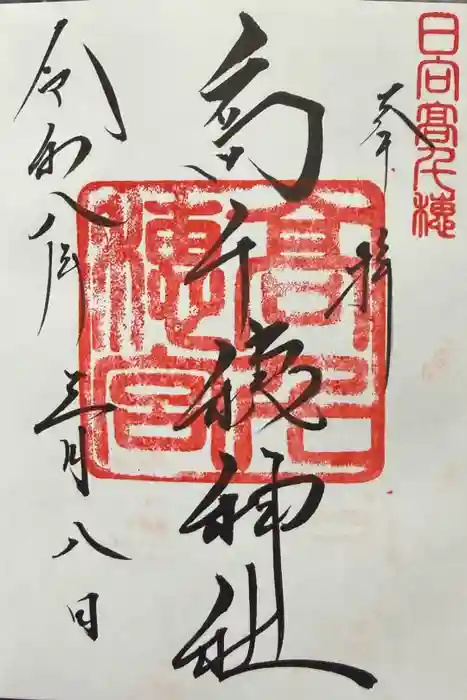 日向髙千穂
奉拝
高千穂神社
髙千穂宮
令和八年
三月八日